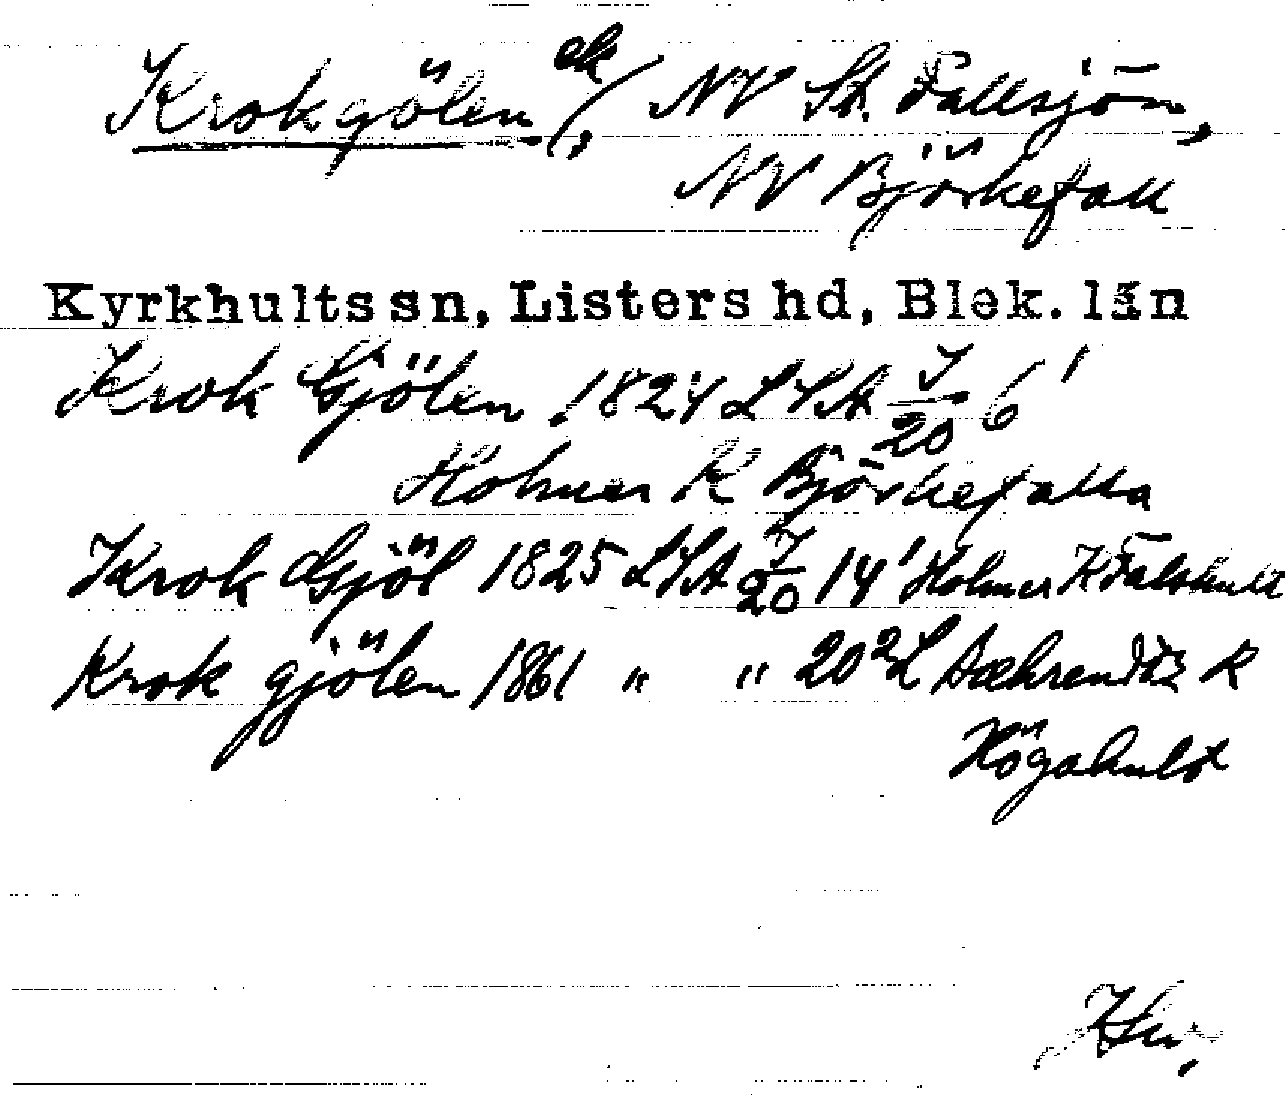 Krokgölen ek/, NV St. Fallsjön,
NV Björkefall
Kyrkhults sn, Listers hd, Blek. län
Krok Gjölen 1824 LSA 7/20 6'
Holmer K Björkefalla
Krok Gjöl 1825 LSA 7/20 14' Holmer K
Krok gjölen 1861 " " 20² L K
Högahult